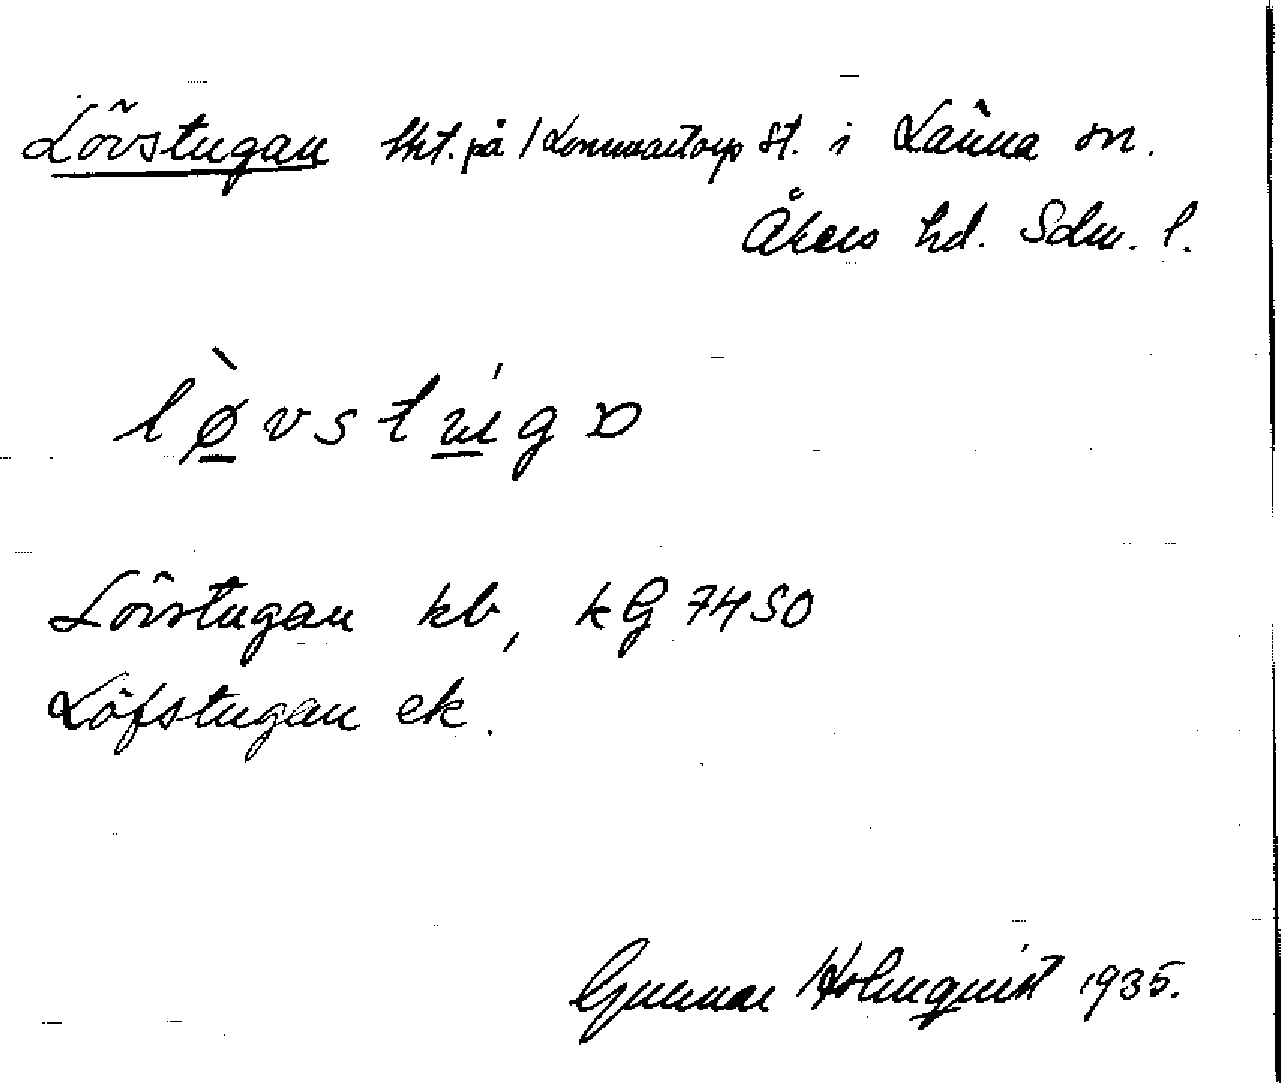 Lövstugan lht. på 1 Lemmartorp st. i Länna sn.
Åkers hd. Sdm. l.
lø̀vstúgɒ
Lövstugan kb, kG 7450
Löfstugan ek.
Gunnar Holmquist 1935.